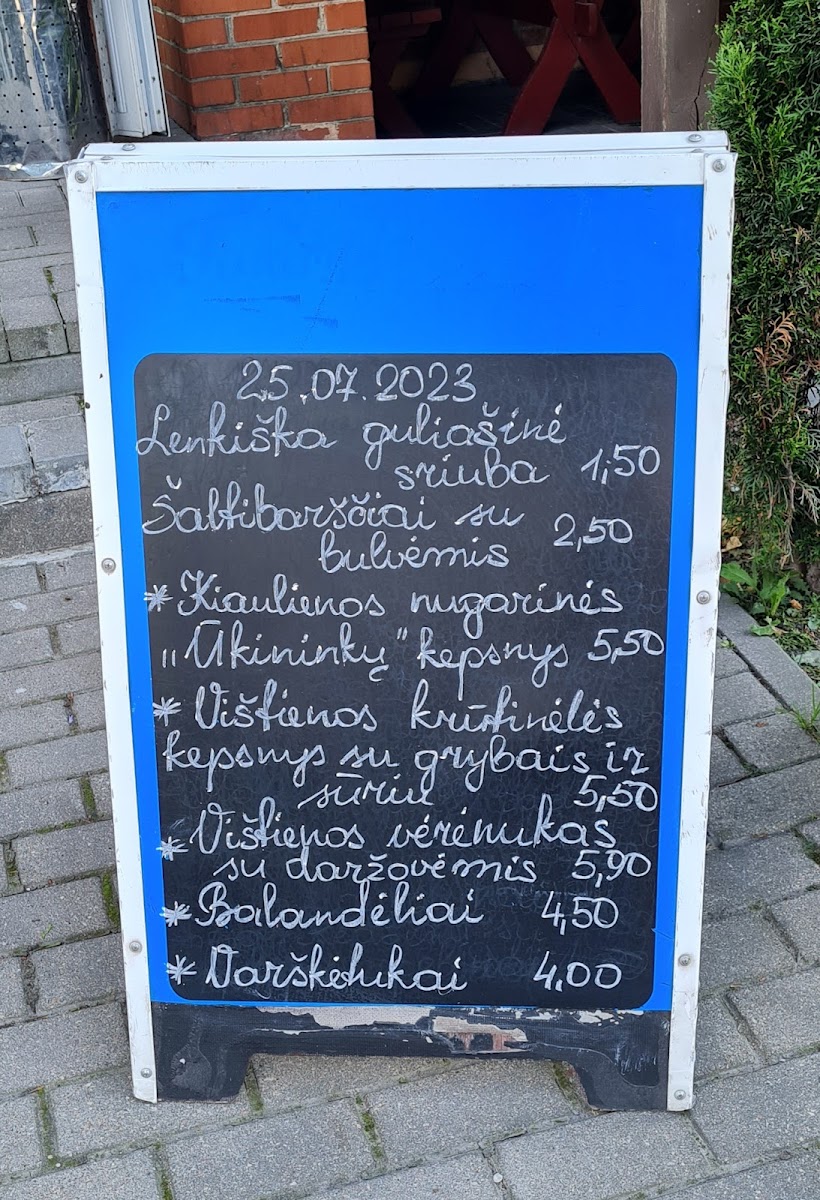 25.07.2023
Lenkiška guliašinė
sriuba 1,50
Šaltibarščiai su
bulvėmis 2,50
*Kiaulienos nugarinės
„Ūkininkų" kepsnys 5,50
*Vištienos krūtinėlės
kepsnys su grybais ir
sūriu 5,50
*Vištienos vėrinukas
su daržovėmis 5,90
*Balandėliai 4,50
*Varškėtukai 4.00